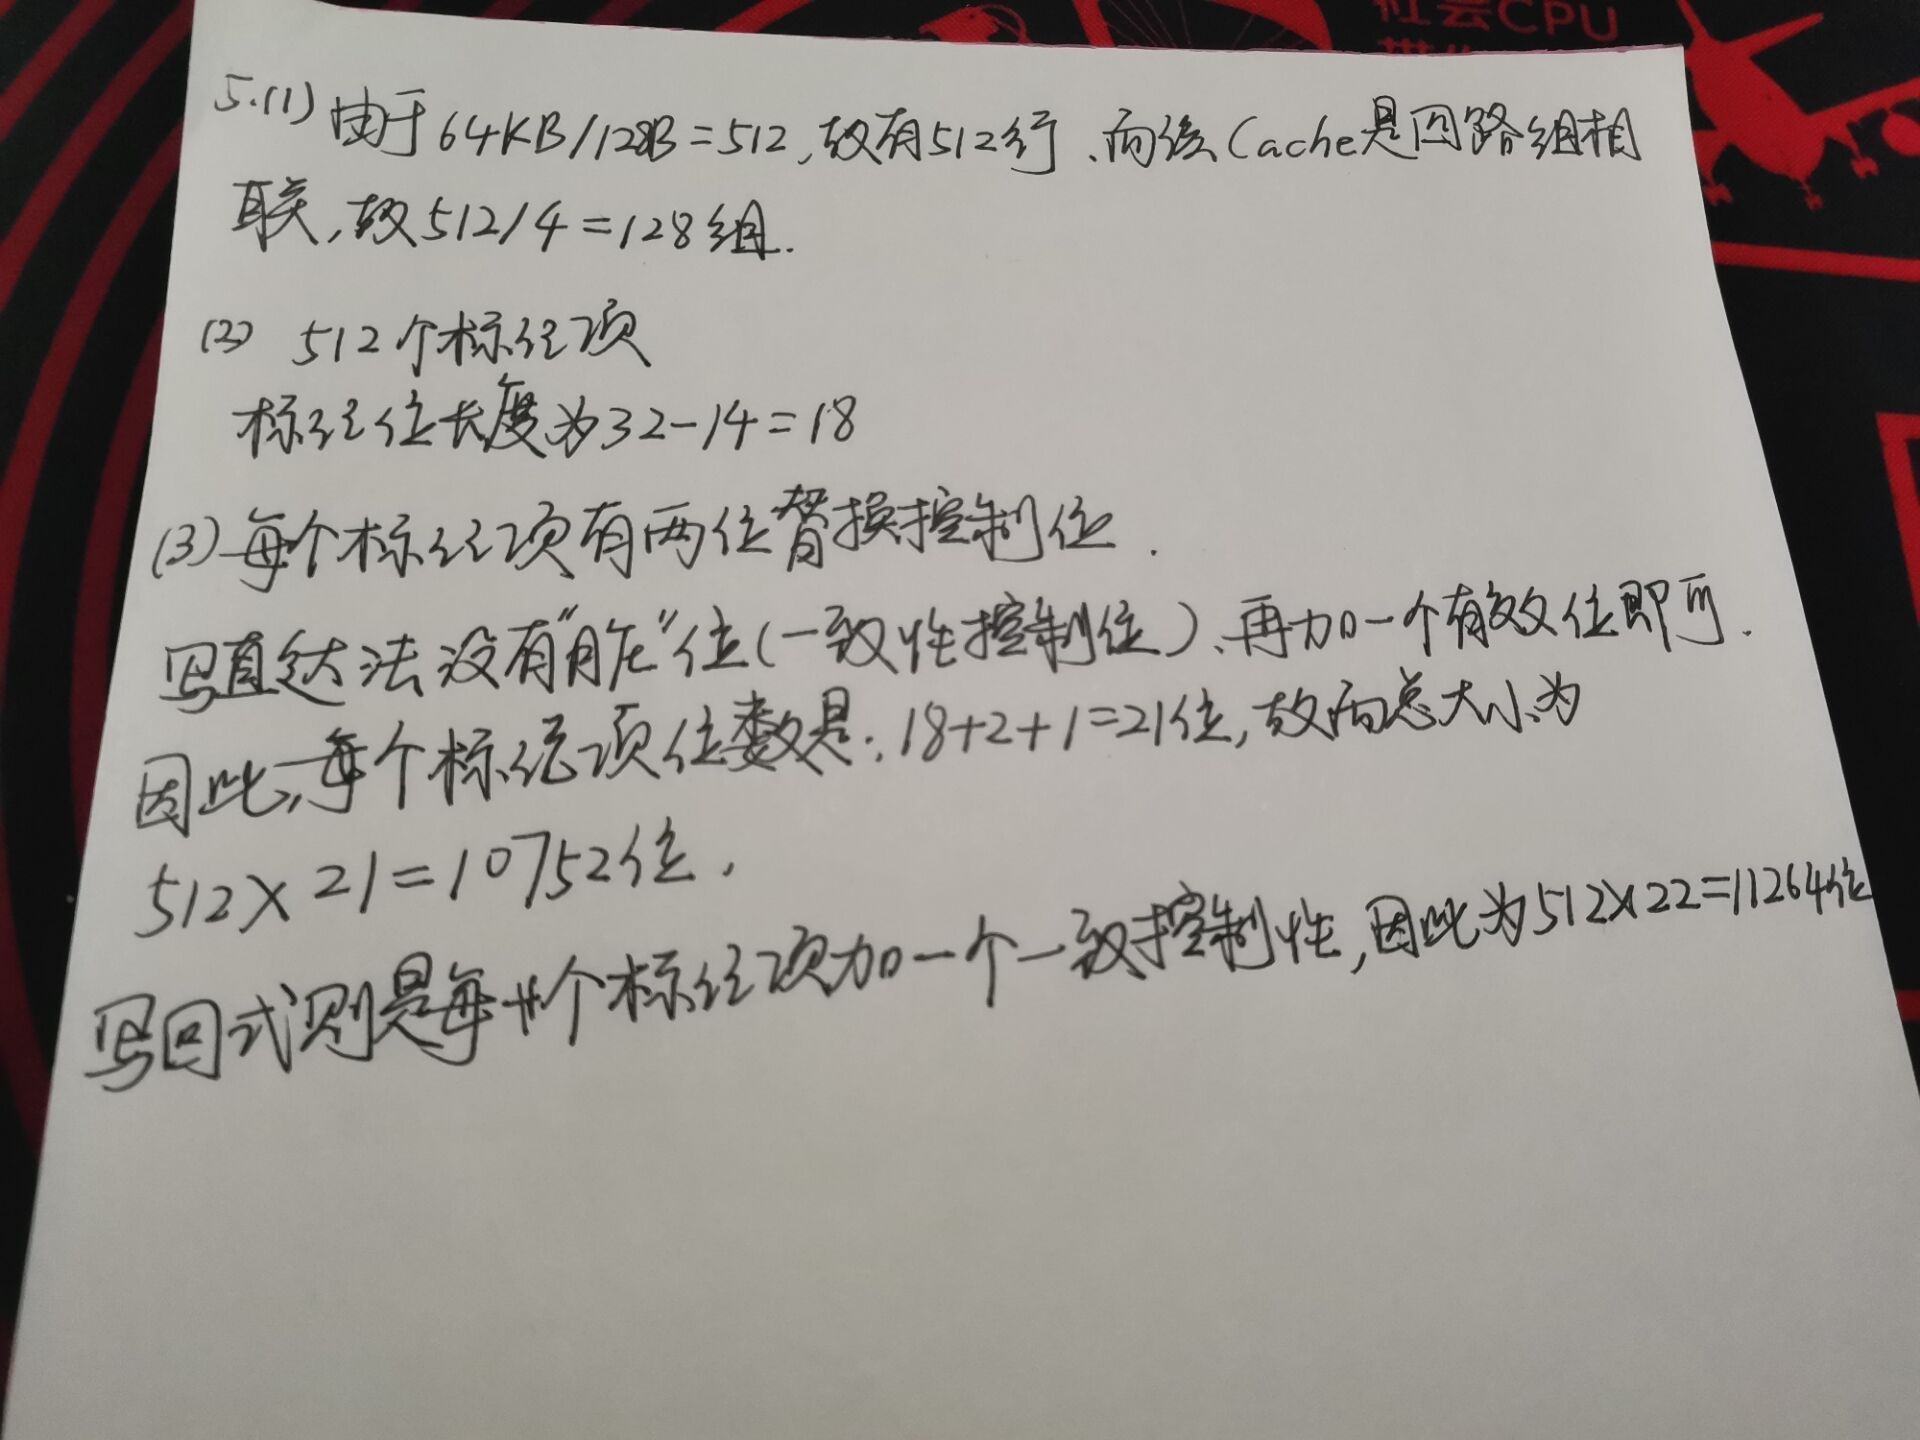 社会CPU
5.(1) 由于64KB/128B=512,故有512行、而该Cache是四路组相
联,故512/4=128组.
(2) 512个标记项
标记位长度为32-14=18
(3)每个标记项有两位替换控制位.
写直达法没有"脏"位(一致性控制位)、再加一个有效位即可.
因此,每个标记项位数是:18+2+1=21位,故而总大小为
512×21=10752位.
写回式则是每个标记项加一个一致控制性,因此为512×22=11264位